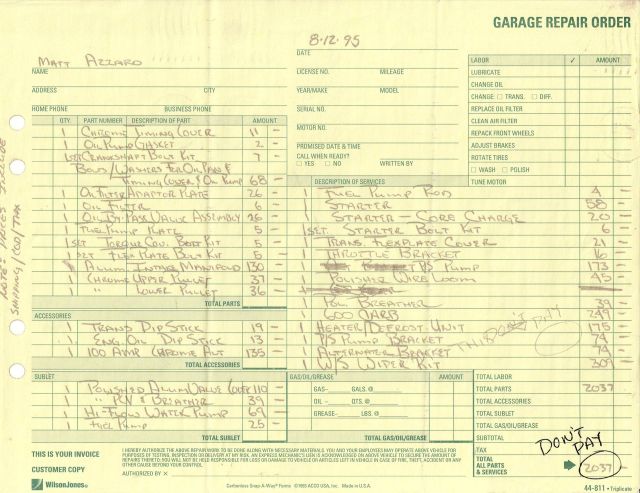 GARAGE REPAIR ORDER
8-12-95
DATE
MATT AZZARO
NAME
LICENSE NO. MILEAGE
ADDRESS CITY
YEAR/MAKE MODEL
HOME PHONE BUSINESS PHONE
SERIAL NO.
MOTOR NO.
PROMISED DATE & TIME
CALL WHEN READY?
☐ YES ☐ NO WRITTEN BY
LABOR ✓ AMOUNT
LUBRICATE
CHANGE OIL
CHANGE ☐ TRANS. ☐ DIFF.
REPLACE OIL FILTER
CLEAN AIR FILTER
REPACK FRONT WHEELS
ADJUST BRAKES
ROTATE TIRES
☐ WASH ☐ POLISH
TUNE MOTOR
QTY. PART NUMBER DESCRIPTION OF PART AMOUNT
1 CHROME TIMING COVER 11 -
1 OIL PUMP GASKET 2 -
1 SET CRANKSHAFT BOLT KIT 7 -
BOLTS/WASHERS FOR OIL PAN &
TIMING COVER & OIL PUMP 68 -
1 OIL FILTER ADAPTOR PLATE 26 -
1 OIL FILTER 6 -
1 OIL BY-PASS VALVE ASSEMBLY 26 -
1 FUEL PUMP PLATE 5 -
1 SET TORQUE COV. BOLT KIT 5 -
1 SET FLEX PLATE BOLT KIT 5 -
1 ALUM INTAKE MANIFOLD 130 -
1 CHROME UPPER PULLEY 37 -
1 " LOWER PULLEY 36 -
TOTAL PARTS
ACCESSORIES
1 TRANS DIP STICK 19 -
1 ENG. OIL DIP STICK 13 -
1 100 AMP CHROME ALT 135 -
TOTAL ACCESSORIES
SUBLET
1 POLISHED ALUM VALVE COVER 110 -
1 " PCV & BREATHER 39 -
1 HI-FLOW WATER PUMP 69 -
1 FUEL PUMP 25 -
TOTAL SUBLET
DESCRIPTION OF SERVICES
1 FUEL PUMP ROD 4 -
1 STARTER 58 -
1 STARTER - CORE CHARGE 20 -
1 SET. STARTER BOLT KIT 6 -
1 TRANS. FLEXPLATE COVER 21 -
1 THROTTLE BRACKET 16 -
1 P/S PUMP 173 -
1 POLISHED WIRE LOOM 45 -
1 BREATHER 39 -
1 600 CARB 249 -
1 HEATER/DEFROST UNIT 175 -
1 P/S PUMP BRACKET 74 -
1 ALTERNATOR BRACKET 74 -
1 W/S WIPER KIT 309 -
DON'T PAY
GAS/OIL/GREASE AMOUNT
GAS- GALS. @
OIL - QTS. @
GREASE- LBS. @
TOTAL GAS/OIL/GREASE
TOTAL LABOR
TOTAL PARTS 2037 -
TOTAL ACCESSORIES
TOTAL SUBLET
TOTAL GAS/OIL/GREASE
SUBTOTAL
TAX
TOTAL ALL PARTS & SERVICES 2037 -
DON'T PAY
THIS IS YOUR INVOICE
CUSTOMER COPY
I HEREBY AUTHORIZE THE ABOVE REPAIR WORK TO BE DONE ALONG WITH NECESSARY MATERIALS. YOU AND YOUR EMPLOYEES MAY OPERATE ABOVE VEHICLE FOR
PURPOSES OF TESTING, INSPECTION OR DELIVERY AT MY RISK. AN EXPRESS MECHANICS LIEN IS ACKNOWLEDGED ON ABOVE VEHICLE TO SECURE THE AMOUNT OF
REPAIRS THERETO. YOU WILL NOT BE HELD RESPONSIBLE FOR LOSS OR DAMAGE TO VEHICLE OR ARTICLES LEFT IN VEHICLE IN CASE OF FIRE, THEFT, ACCIDENT OR ANY
OTHER CAUSE BEYOND YOUR CONTROL.
AUTHORIZED BY
WilsonJones
Carbonless Snap-A-Way® Forms ©1995 ACCO USA, Inc. Made in U.S.A.
44-811 • Triplicate
NOTE: PRICES INCLUDE
SHIPPING/COD/TAX